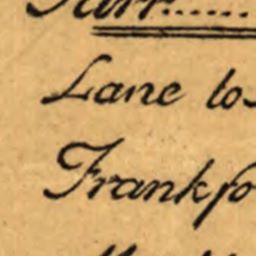 Lane to
Frankfo